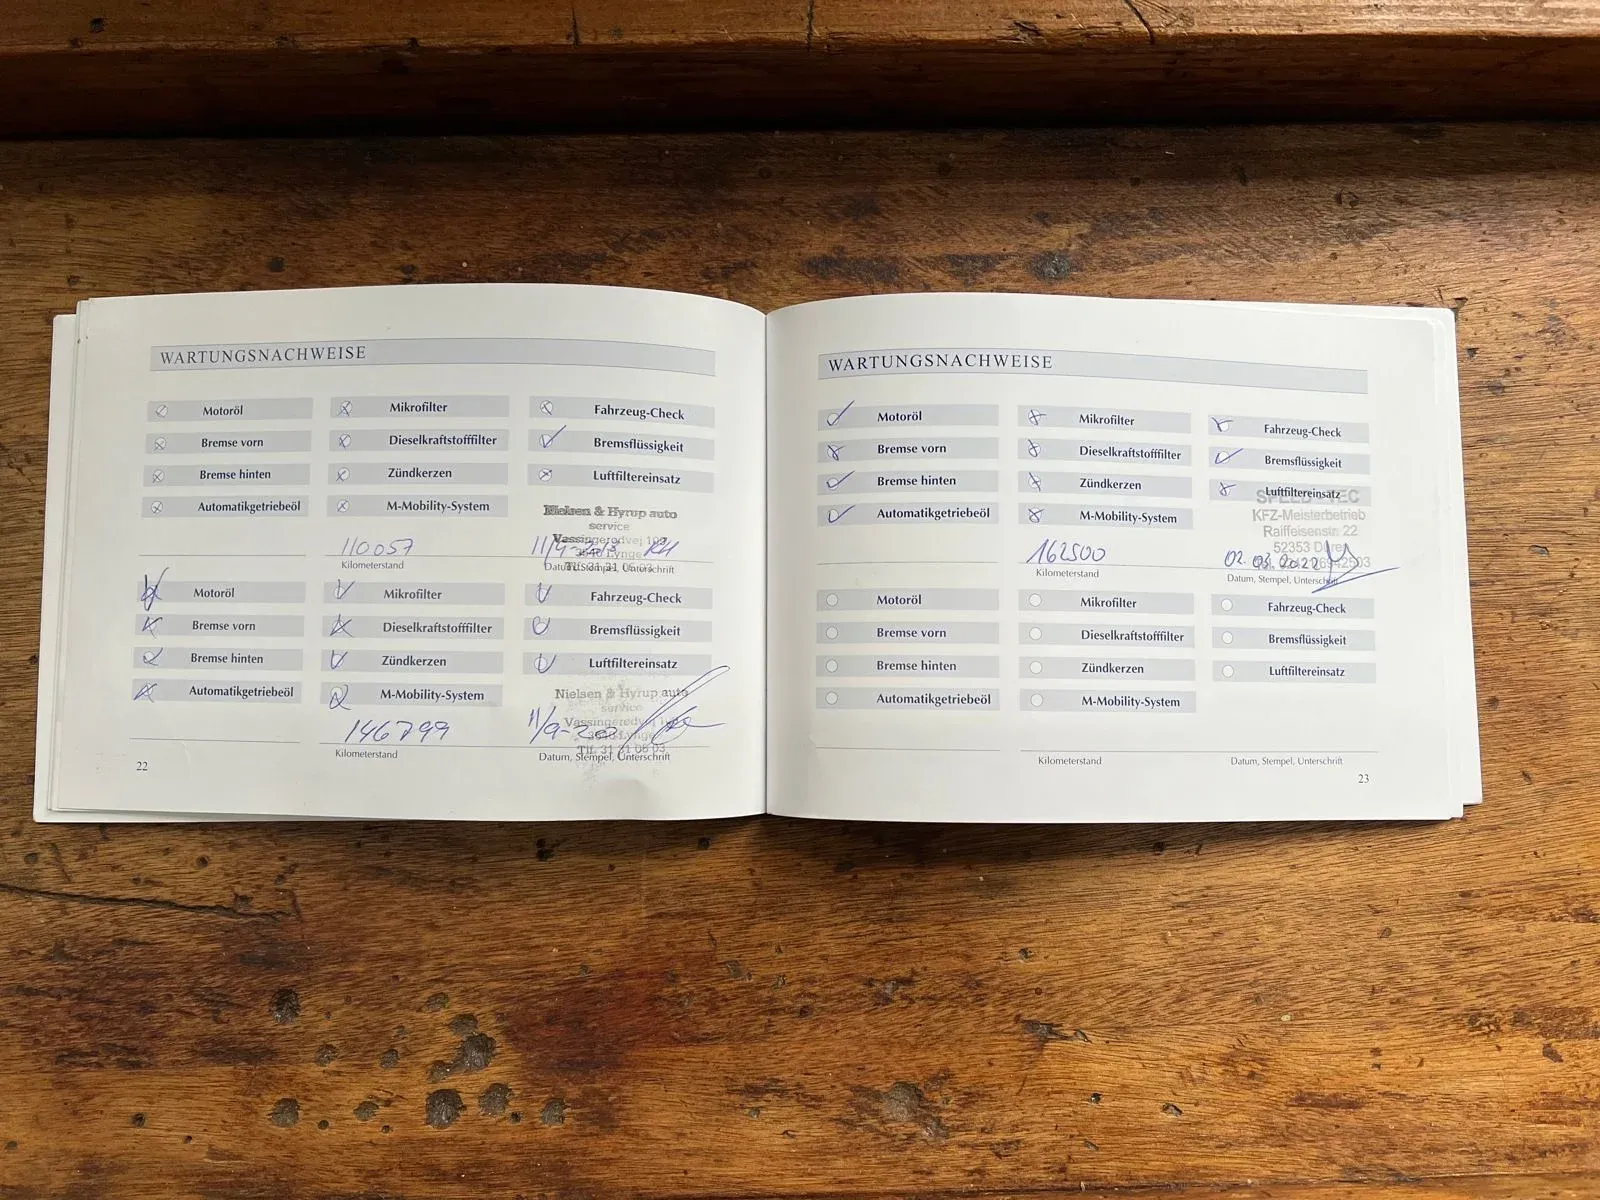 WARTUNGSNACHWEISE
Motoröl Mikrofilter Fahrzeug-Check
Bremse vorn Dieselkraftstofffilter Bremsflüssigkeit
Bremse hinten Zündkerzen Luftfiltereinsatz
Automatikgetriebeöl M-Mobility-System
Nielsen & Hyrup auto
service
Vassingerødvej
3540 Lynge
Tlf. 31 31 05 03
110057
Kilometerstand
Datum, Stempel, Unterschrift
Motoröl Mikrofilter Fahrzeug-Check
Bremse vorn Dieselkraftstofffilter Bremsflüssigkeit
Bremse hinten Zündkerzen Luftfiltereinsatz
Automatikgetriebeöl M-Mobility-System
Nielsen & Hyrup auto
service
Vassingerødvej
3540 Lynge
Tlf. 31 31 05 03
146799
Kilometerstand
Datum, Stempel, Unterschrift
22
WARTUNGSNACHWEISE
Motoröl Mikrofilter Fahrzeug-Check
Bremse vorn Dieselkraftstofffilter Bremsflüssigkeit
Bremse hinten Zündkerzen Luftfiltereinsatz
Automatikgetriebeöl M-Mobility-System
KFZ-Meisterbetrieb
Raiffeisenstr. 22
52353 Düren
162500
02.03.2022
Kilometerstand
Datum, Stempel, Unterschrift
Motoröl Mikrofilter Fahrzeug-Check
Bremse vorn Dieselkraftstofffilter Bremsflüssigkeit
Bremse hinten Zündkerzen Luftfiltereinsatz
Automatikgetriebeöl M-Mobility-System
Kilometerstand
Datum, Stempel, Unterschrift
23